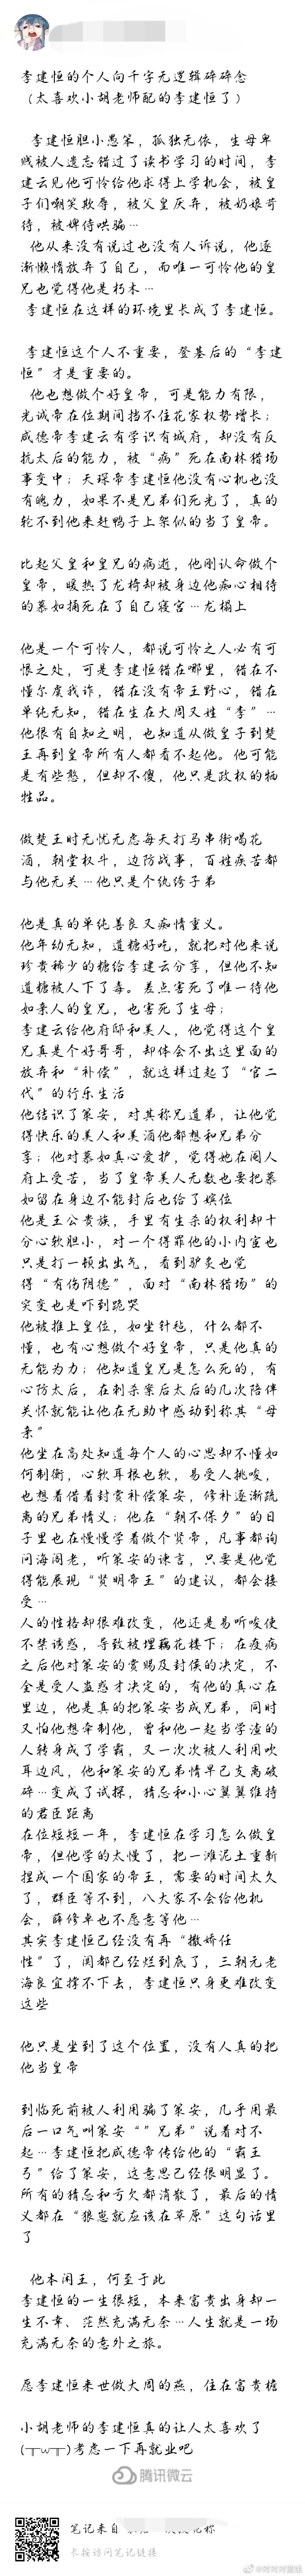 李建恒的个人向千字无逻辑碎碎念
（太喜欢小胡老师配的李建恒了）
李建恒胆小愚笨，孤独无依，生母卑
贱被人遗忘错过了读书学习的时间，李
建云见他可怜给他求得上学机会，被皇
子们嘲笑欺辱，被父皇厌弃，被奶娘苛
待，被婢侍哄骗…
他从来没有说过也没有人诉说，他逐
渐懒惰放弃了自己，而唯一可怜他的皇
兄也觉得他是朽木…
李建恒在这样的环境里长成了李建恒。
李建恒这个人不重要，登基后的“李建
恒”才是重要的。
他也想做个好皇帝，可是能力有限，
光诚帝在位期间挡不住花家权势增长；
咸德帝李建云有学识有城府，却没有反
抗太后的能力，被“病”死在南林猎场
事变中；天琛帝李建恒他没有心机也没
有魄力，如果不是兄弟们死光了，真的
轮不到他来赶鸭子上架似的当了皇帝。
比起父皇和皇兄的病逝，他刚认命做个
皇帝，暖热了龙椅却被身边他痴心相待
的慕如捅死在了自己寝宫…龙榻上
他是一个可怜人，都说可怜之人必有可
恨之处，可是李建恒错在哪里，错在不
懂尔虞我诈，错在没有帝王野心，错在
单纯无知，错在生在大周又姓“李”…
他很有自知之明，也知道从做皇子到楚
王再到皇帝所有人都看不起他。他可能
是有些憨，但却不傻，他只是政权的牺
牲品。
做楚王时无忧无虑每天打马串街喝花
酒，朝堂权斗，边防战事，百姓疾苦都
与他无关…他只是个纨绔子弟
他是真的单纯善良又痴情重义。
他年幼无知，道糖好吃，就把对他来说
珍贵稀少的糖给李建云分享，但他不知
道糖被人下了毒。差点害死了唯一待他
如亲人的皇兄，也害死了生母；
李建云给他府邸和美人，他觉得这个皇
兄真是个好哥哥，却体会不出这里面的
放弃和“补偿”，就这样过起了“官二
代”的行乐生活
他结识了策安，对其称兄道弟，让他觉
得快乐的美人和美酒他都想和兄弟分
享；他对慕如真心爱护，觉得她在阉人
府上受苦，当了皇帝美人无数也要把慕
如留在身边不能封后也给了嫔位
他是王公贵族，手里有生杀的权利却十
分心软胆小，对一个得罪他的小内宦也
只是打一顿出出气，看到驴炙也觉
得“有伤阴德”，面对“南林猎场”的
突变也是吓到跪哭
他被推上皇位，如坐针毡，什么都不
懂，也有心想做个好皇帝，只是他真的
无能为力；他知道皇兄是怎么死的，有
心防太后，在刺杀案后太后的几次陪伴
关怀就能让他在无助中感动到称其“母
亲”
他坐在高处知道每个人的心思却不懂如
何制衡，心软耳根也软，易受人挑唆，
也想着借着封赏补偿策安，修补逐渐疏
离的兄弟情义；他在“朝不保夕”的日
子里也在慢慢学着做个贤帝，凡事都询
问海阁老，听策安的谏言，只要是他觉
得能展现“贤明帝王”的建议，都会接
受…
人的性格却很难改变，他还是易听唆使
不禁诱惑，导致被埋藕花楼下；在疫病
之后他对策安的赏赐及封侯的决定，不
全是受人蛊惑才决定的，有他的真心在
里边，他是真的把策安当成兄弟，同时
又怕他想牵制他，曾和他一起当学渣的
人转身成了学霸，又一次次被人利用吹
耳边风，他和策安的兄弟情早已支离破
碎…变成了试探，猜忌和小心翼翼维持
的君臣距离
在位短短一年，李建恒在学习怎么做皇
帝，但他学的太慢了，把一滩泥土重新
捏成一个国家的帝王，需要的时间太久
了，群臣等不到，八大家不会给他机
会，薛修卓也不愿意等他…
其实李建恒已经没有再“撒娇任
性”了，阒都已经烂到底了，三朝元老
海良宜撑不下去，李建恒只身更难改变
这些
他只是坐到了这个位置，没有人真的把
他当皇帝
到临死前被人利用骗了策安，几乎用最
后一口气叫策安“”兄弟”说着对不
起…李建恒把咸德帝传给他的“霸王
弓”给了策安，这意思已经很明显了。
所有的猜忌和亏欠都消散了，最后的情
义都在“狼崽就应该在草原”这句话里
了
他本闲王，何至于此
李建恒的一生很短，本来富贵出身却一
生不幸、茫然充满无奈…人生就是一场
充满无奈的意外之旅。
愿李建恒来世做大周的燕，住在富贵檐
小胡老师的李建恒真的让人太喜欢了
(╥ω╥)考虑一下再就业吧
腾讯微云
笔记来自
称
长按访问笔记链接